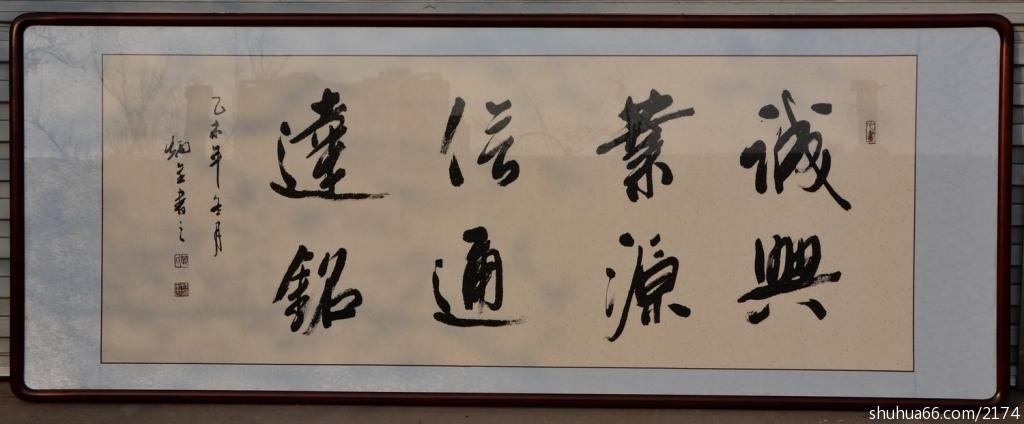 誠興
業源
信通
達銘
乙未年冬月
炳立書之
shuhua66.com/2174